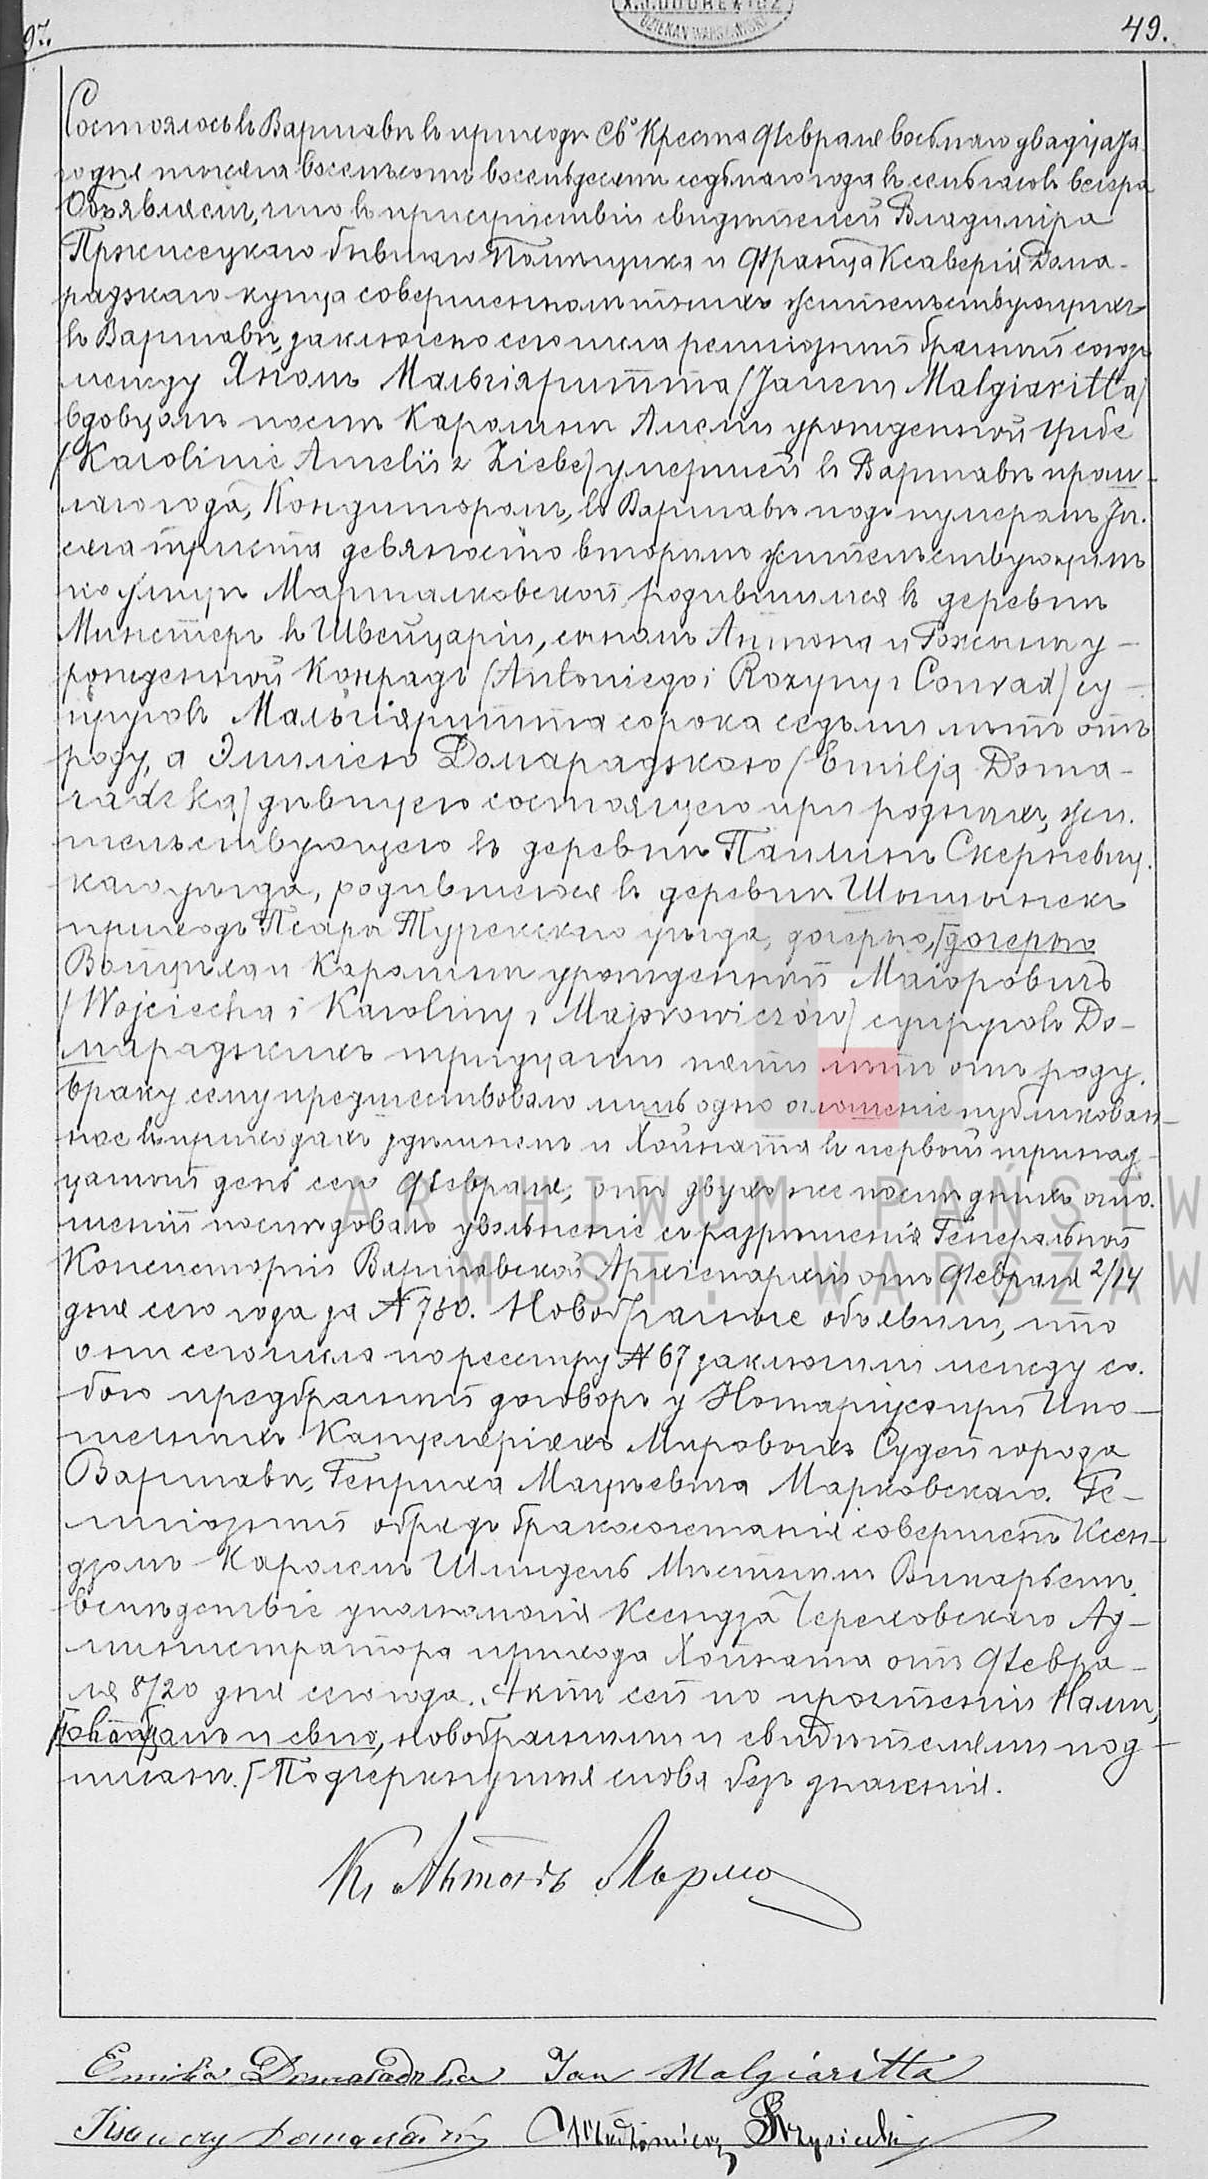 97.
49.
DZIEKAN WARSZAWSKI
Состоялось въ Варшавѣ въ приходѣ Св Креста Февраля восьмаго двадцата
го дня тысяча восемьсотъ восемьдесятъ седьмаго года въ семь часовъ вечера
Объявляемъ, что въ присутствіи свидѣтелей Владиміра
бывшаго Помѣщика и Франца Ксаверія Дома-
радзкаго купца совершеннолѣтнихъ жительствующихъ
въ Варшавѣ, заключено сего числа религіозный брачный союзъ
между Яномъ Мальгіяритта /Janem Malgiaritta/
вдовцомъ послѣ Каролинѣ Амеліи урожденной Цибе
/Karolinie Amelii z Ziebe/ умершей въ Варшавѣ прош-
лаго года, Кондиторомъ, въ Варшавѣ подъ нумеромъ Ты-
сяча триста девяносто вторымъ жительствующимъ
по улицѣ Маршалковской, родившимся въ деревнѣ
Минстеръ въ Швейцаріи, сыномъ Антона и Рожины у-
рожденной Конрадъ /Antoniego i Rozyny z Conrad/ су-
пруговъ Мальгіяритта сорока седьми лѣтъ отъ
роду, а Эмиліею Домарадзкою /Emilją Doma-
radzką/ дѣвицею состоящею при родныхъ, жи-
тельствующею въ деревнѣ Паулинъ Скерневиц-
каго уѣзда, родившеюся въ деревнѣ
приходѣ Псари Турекскаго уѣзда, дочерью, /дочерью
Войцѣха и Каролины урожденной Маіоровичъ
/Wojciecha i Karoliny z Majorowiczów/ супруговъ До-
марадзкихъ тридцати пяти лѣтъ отъ роду.
Браку сему предшествовало лишь одно оглашеніе публикован-
ное въ приходахъ здѣшнемъ и Хойната въ первый тринад-
цатый день сего Февраля, отъ двухъ же послѣднихъ огла-
шеній послѣдовало увольненіе съ разрѣшенія Генеральной
Консисторіи Варшавской Архіепархіи отъ Февраля 2/14
дня сего года за № 780. Новобрачные объявили, что
они сего числа по реестру № 67 заключили между со-
бою предбрачный договоръ у Нотаріуса при Ипо-
течныхъ Канцеляріяхъ Мировыхъ Судей города
Варшавы, Генриха Мацѣевича Марковскаго. Ре-
лигіозный обрядъ бракосочетанія совершенъ Ксен-
дзомъ Каролемъ Шмидель Мѣстнымъ Викаріемъ
вслѣдствіе уполномочія Ксендза Череховскаго Ад-
министратора прихода Хойната отъ Февра-
ля 8/20 дня сего года. Актъ сей по прочтеніи Нами,
новобрачными и свидѣтелями под-
писанъ. /Подчеркнутыя слова безъ значенія.
Кс Антонъ
Emilia Domaradzka Jan Malgiaritta
Ksawery Domaradzki Włodzimierz
ARCHIWUM PAŃSTW
M. ST. WARSZAW